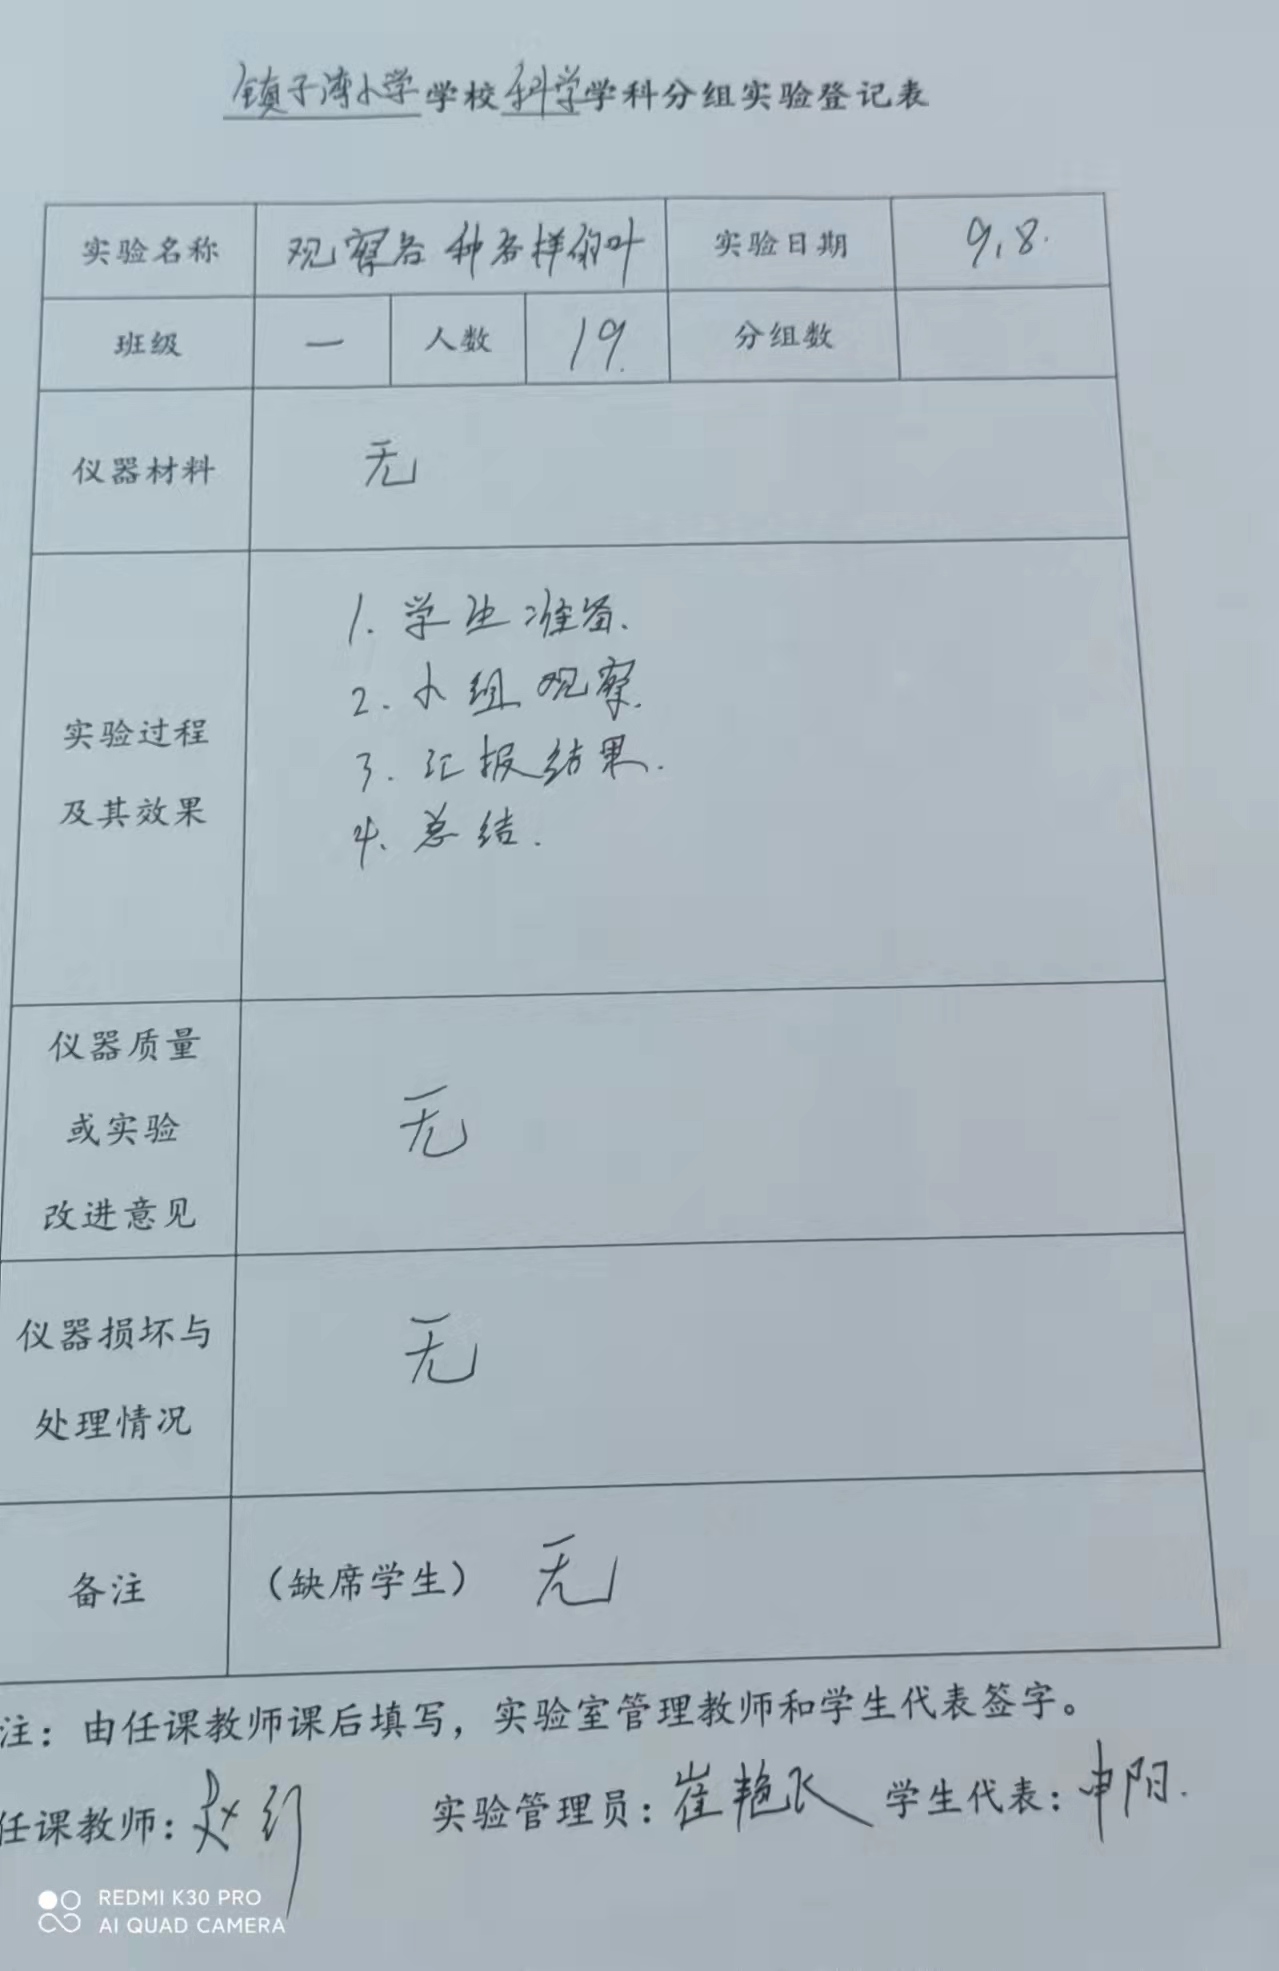 镇子湾小学学校科学学科分组实验登记表
实验名称 观察各种各样的叶 实验日期 9.8.
班级 一 人数 19. 分组数
仪器材料 无
实验过程
及其效果
1. 学生准备.
2. 小组观察.
3. 汇报结果.
4. 总结.
仪器质量
或实验
改进意见
无
仪器损坏与
处理情况
无
备注 (缺席学生) 无
注：由任课教师课后填写，实验室管理教师和学生代表签字。
任课教师：赵 实验管理员：崔艳 学生代表：申阳.
REDMI K30 PRO
AI QUAD CAMERA